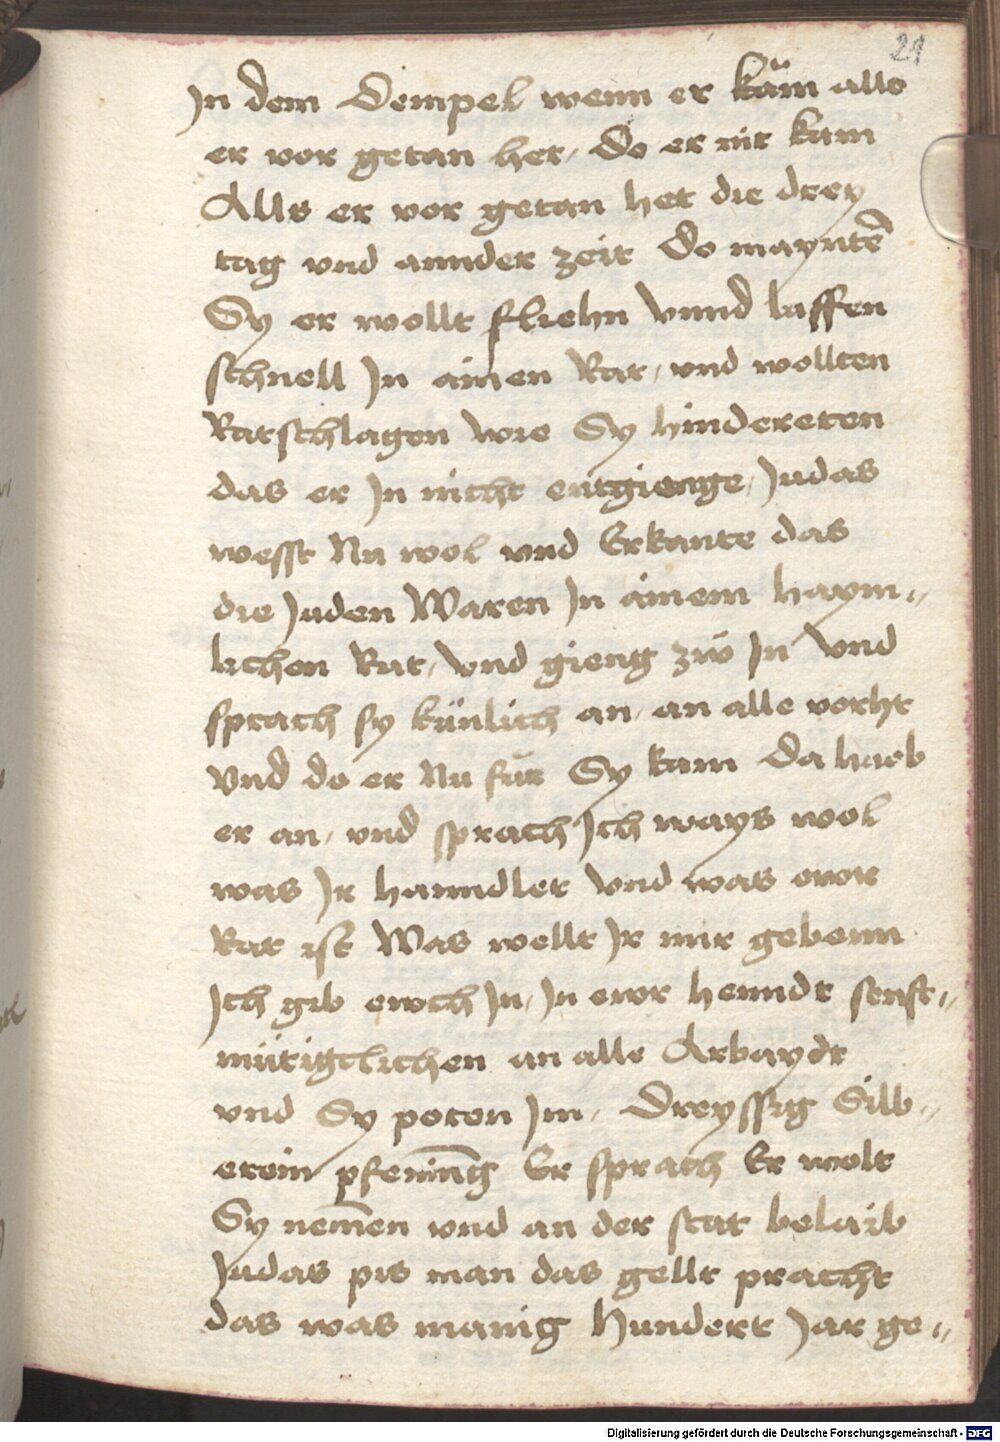 21
Jn dem Dempel wenn er kam̈ alls
er vor getan het / Do er nit kam
Alls er vor getan het die drey
tag vnd annder zeit Do maynte͂
Sy er wollt fliehn Vnnd luffen
schnell Jn ainen Rat / vnd wollten
Ratschlagen wie Sy hindereten
das er Jn nicht entgienge / Judas
wesst Nu wol vnd Erkante das
die Juden Waren Jn ainem haym„
lichen Rat / Vnd gieng zw̄ Jn Vnd
sprach sy künlich an / an alle vorht
Vnd do er Nu fur Sy kam Da hueb
er an / vnd sprach Jch ways wol
was Jr hanndlet Vnd was ewr
Rat ist Was wellt Jr mir gebenn
Jch gib ewch Jn / Jn ewr henndt senft„
mütigclichen an alle Arbaydt
vnd Sy poten Jm / Dreyssig Silb„
erein pfening Er sprach Er wolt
Sy nemen vnd an der stat belaib
Judas pis man das gellt pracht
das was manig Hundert Jar ge„
Digitalisierung gefördert durch die Deutsche Forschungsgemeinschaft - DFG